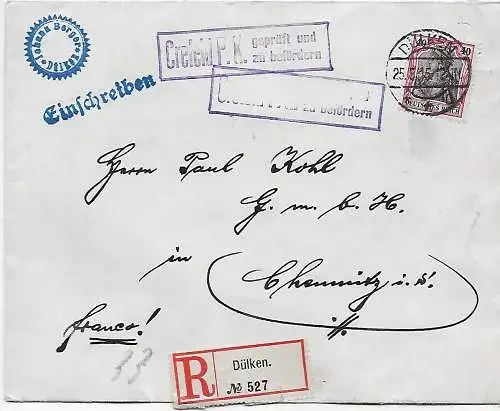 Johann Berger
DÜLKEN
Einschreiben
Crefeld P. K. geprüft und
zu befördern
zu befördern
DÜLKEN
40
DEUTSCHES REICH
Herren Paul Kohl
G. m. b. H.
in
Chemnitz i. S.
franco!
33
R
Dülken.
№ 527